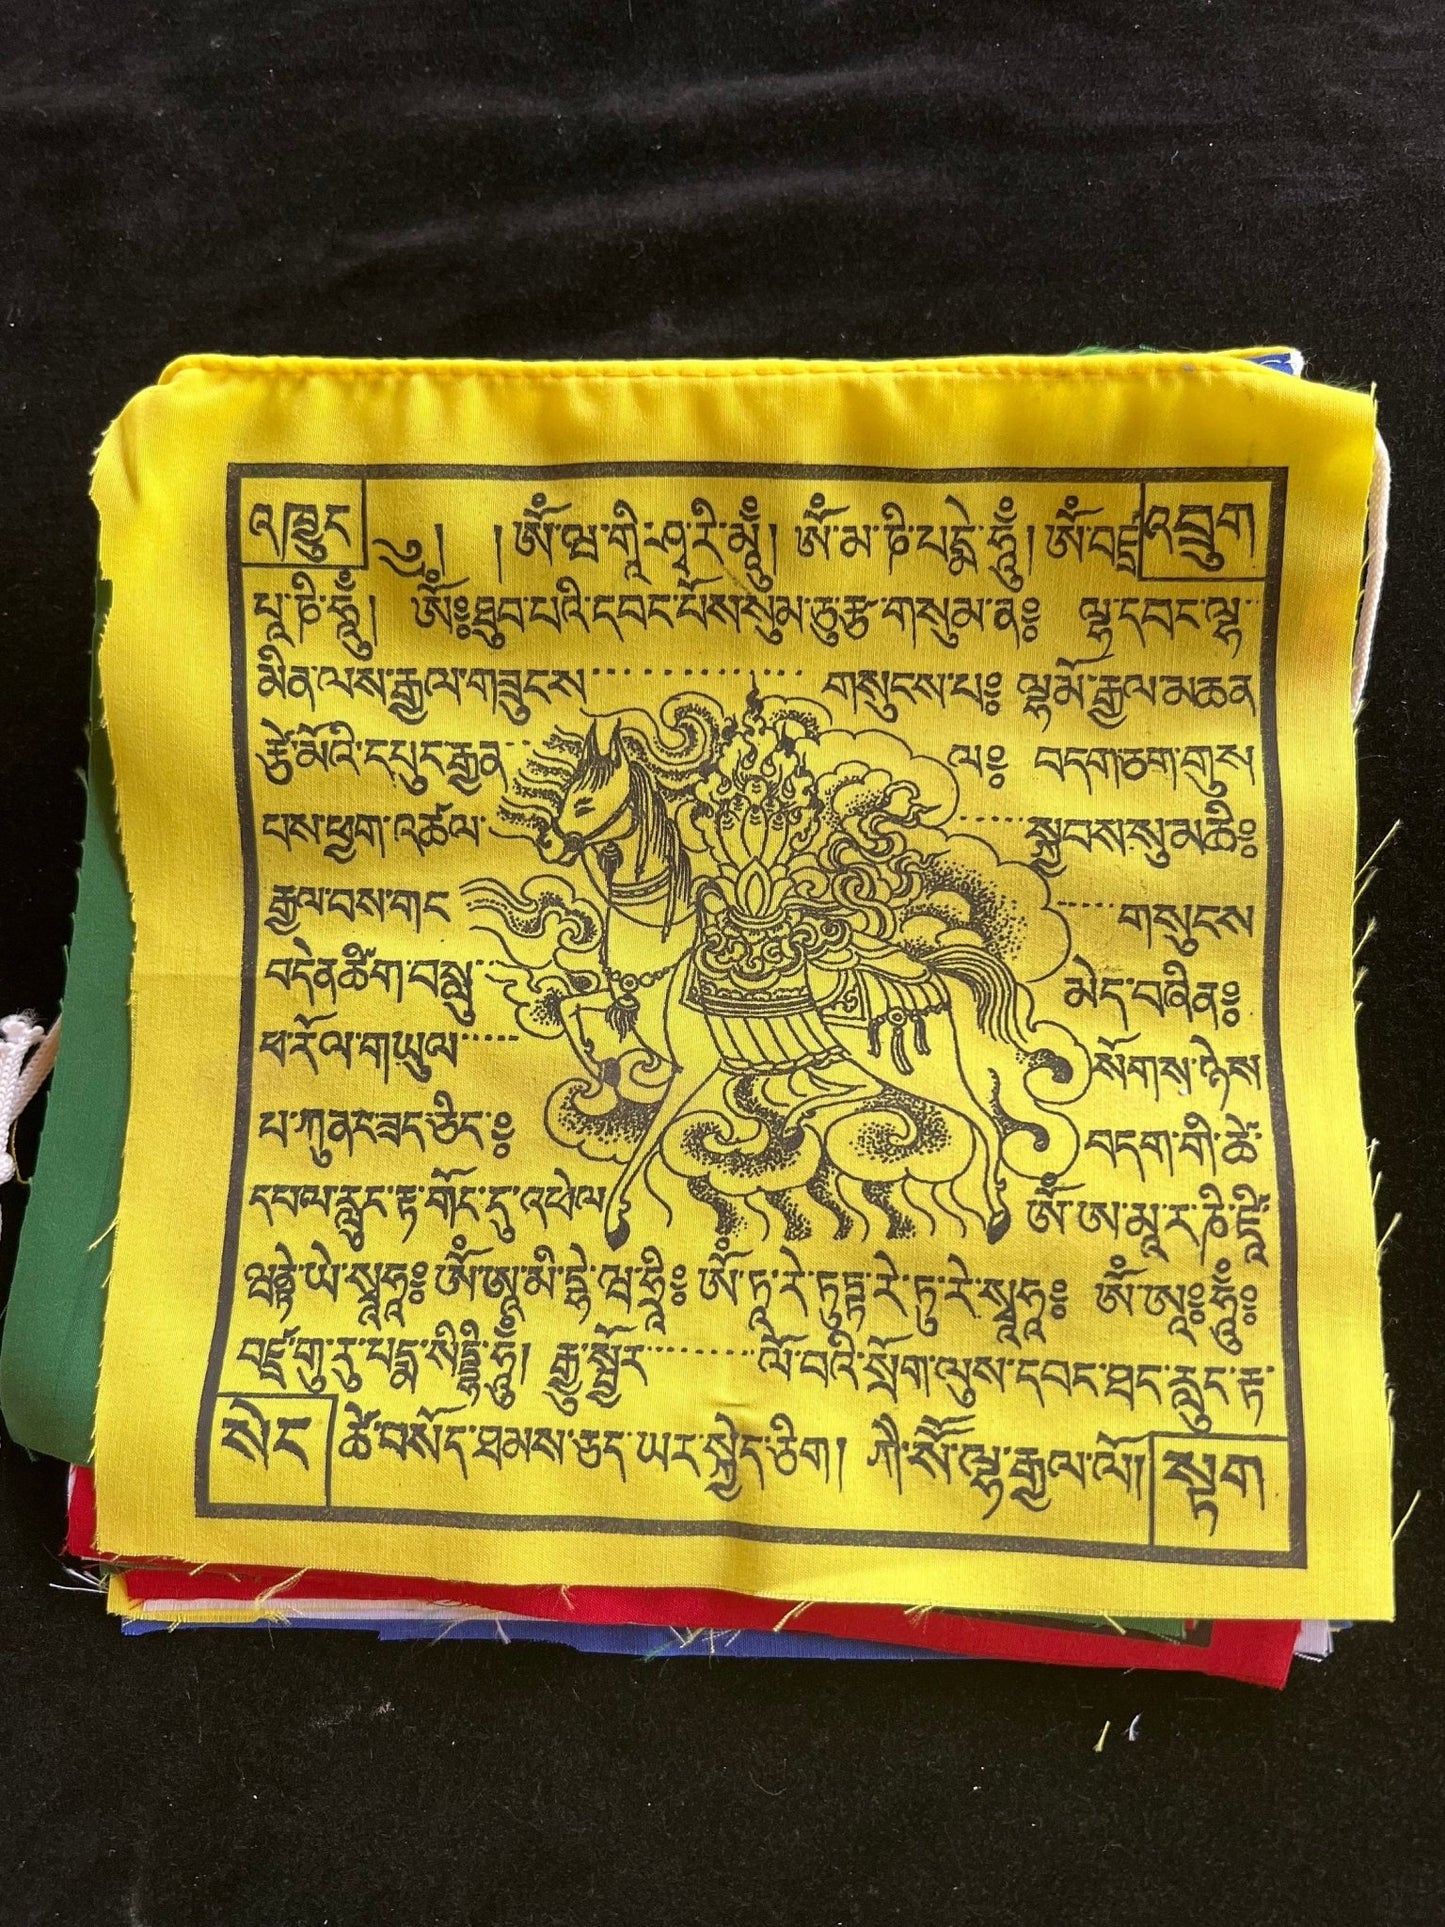 འཁྱུང ༄། །ཨོཾ་ཝ་གཱི་ཤྭ་རི་མཱུཾ། ཨོཾ་མ་ཎི་པདྨེ་ཧཱུཾ། ཨོཾ་བཛྲ འབྲུག
པཱ་ཎི་ཧཱུཾ། ཨོཾ༔ཐུབ་པའི་དབང་པོས་སུམ་ཅུ་རྩ་གསུམ་ན༔ ལྷ་དབང་ལྷ་
མིན་ལས་རྒྱལ་གཟུངས གསུངས་པ༔ ལྷ་མོ་རྒྱལ་མཚན
རྩེ་མོའི་དཔུང་རྒྱན ལ༔ བདག་ཅག་གུས
པས་ཕྱག་འཚལ་ སྐྱབས་སུ་མཆི༔
རྒྱལ་བས་གང གསུངས
བདེན་ཚིག་བསླུ་ མེད་བཞིན༔
ཕ་རོལ་གཡུལ སོགས་ཉེས
པ་ཀུན་ཟད་ཅིང་༔ བདག་གི་ཚེ་
དཔལ་རླུང་རྟ་གོང་དུ་འཕེལ ཨོཾ་ཨ་མཱ་ར་ཎི་ཛཱི་
ཝནྟེ་ཡེ་སྭཱཧཱ༔ ཨོཾ་ཨཱ་མི་ཏྟེ་ལ་ཧྲཱི༔ ཨོཾ་ཏཱ་རེ་ཏུཏྟཱ་རེ་ཏུ་རེ་སྭཱཧཱ༔ ཨོཾ་ཨཱ༔ཧཱུཾ༔
བཛྲ་གུ་རུ་པདྨ་སིདྡྷི་ཧཱུཾ། རྒྱུ་སྦྱོར ལོ་བའི་སྲོག་ལུས་དབང་ཐང་རླུང་རྟ་
སེང ཚེ་བསོད་ཐམས་ཅད་ཡར་སྐྱེད་ཅིག། ཀི་སོ་ལྷ་རྒྱལ་ལོ། སྟག